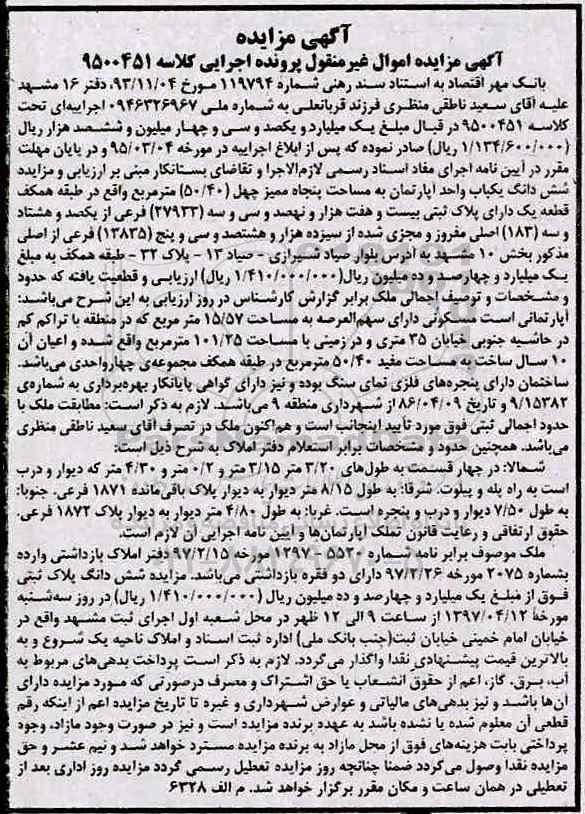 آگهی مزایده
آگهی مزایده اموال غیرمنقول پرونده اجرایی کلاسه ۹۵۰۰۴۵۱
بانک مهر اقتصاد به استناد سند رهنی شماره ۱۱۹۷۹۴ مورخ ۹۳/۱۱/۰۴، دفتر ۱۶ مشهد
علیه آقای سعید ناطقی منظری فرزند قربانعلی به شماره ملی ۰۹۴۶۳۲۶۹۶۷ اجراییه‌ای تحت
کلاسه ۹۵۰۰۴۵۱ در قبال مبلغ یک میلیارد و یکصد و سی و چهار میلیون و ششصد هزار ریال
(۱/۱۳۴/۶۰۰/۰۰۰ ریال) صادر نموده که پس از ابلاغ اجراییه در مورخه ۹۵/۰۳/۰۴ و در پایان مهلت
مقرر در آیین نامه اجرای مفاد اسناد رسمی لازم‌الاجرا و تقاضای بستانکار مبنی بر ارزیابی و مزایده
شش دانگ یکباب واحد آپارتمان به مساحت پنجاه ممیز چهل (۵۰/۴۰) مترمربع واقع در طبقه همکف
قطعه یک دارای پلاک ثبتی بیست و هفت هزار و نهصد و سی و سه (۲۷۹۳۳) فرعی از یکصد و هشتاد
و سه (۱۸۳) اصلی مفروز و مجزی شده از سیزده هزار و هشتصد و سی و پنج (۱۳۸۳۵) فرعی از اصلی
مذکور بخش ۱۰ مشهد به آدرس بلوار صیاد شیرازی - صیاد ۱۳ - پلاک ۳۲ - طبقه همکف به مبلغ
یک میلیارد و چهارصد و ده میلیون ریال(۱/۴۱۰/۰۰۰/۰۰۰ ریال) ارزیابی و قطعیت یافته که حدود
و مشخصات و توصیف اجمالی ملک برابر گزارش کارشناس در روز ارزیابی به این شرح می‌باشد:
آپارتمانی است مسکونی دارای سهم‌العرصه به مساحت ۱۵/۵۷ متر مربع که در منطقه با تراکم کم
در حاشیه جنوبی خیابان ۳۵ متری و در زمینی با مساحت ۱۰۱/۲۵ مترمربع واقع شده و اعیان آن
۱۰ سال ساخت به مساحت مفید ۵۰/۴۰ مترمربع در طبقه همکف مجموعه‌ی چهارواحدی می‌باشد.
ساختمان دارای پنجره‌های فلزی نمای سنگ بوده و نیز دارای گواهی پایانکار بهره‌برداری به شماره‌ی
۹/۱۵۳۸۲ و تاریخ ۸۶/۰۴/۰۹ از شهرداری منطقه ۹ می‌باشد. لازم به ذکر است: مطابقت ملک با
حدود اجمالی ثبتی فوق مورد تأیید اینجانب است و هم‌اکنون ملک در تصرف آقای سعید ناطقی منظری
می‌باشد. همچنین حدود و مشخصات برابر استعلام دفتر املاک به شرح ذیل است:
شمالا: در چهار قسمت به طول‌های ۳/۲۰ متر ۳/۱۵ متر و ۰/۲ متر و ۴/۳۰ متر که دیوار و درب
است به راه پله و پیلوت. شرقا: به طول ۸/۱۵ متر دیوار به دیوار پلاک باقی‌مانده ۱۸۷۱ فرعی. جنوبا:
به طول ۷/۵۰ دیوار و درب و پنجره است. غربا: به طول ۴/۸۰ متر دیوار به دیوار پلاک ۱۸۷۲ فرعی.
حقوق ارتفاقی و رعایت قانون تملک آپارتمان‌ها و آیین نامه اجرایی آن لازم است.
ملک موصوف برابر نامه شماره ۵۵۲۰ - ۱۲۹۷ مورخه ۹۷/۲/۱۵ دفتر املاک بازداشتی وارده
بشماره ۲۰۷۵ مورخه ۹۷/۲/۲۶ دارای دو فقره بازداشتی می‌باشد. مزایده شش دانگ پلاک ثبتی
فوق از مبلغ یک میلیارد و چهارصد و ده میلیون ریال (۱/۴۱۰/۰۰۰/۰۰۰ ریال) در روز سه‌شنبه
مورخه ۱۳۹۷/۰۴/۱۲ از ساعت ۹ الی ۱۲ ظهر در محل شعبه اول اجرای ثبت مشهد واقع در
خیابان امام خمینی خیابان ثبت(جنب بانک ملی) اداره ثبت اسناد و املاک ناحیه یک شروع و به
بالاترین قیمت پیشنهادی نقدا واگذار می‌گردد. لازم به ذکر است پرداخت بدهی‌های مربوط به
آب، برق، گاز، اعم از حقوق انشعاب یا حق اشتراک و مصرف درصورتی که مورد مزایده دارای
آن‌ها باشد و نیز بدهی‌های مالیاتی و عوارض شهرداری و غیره تا تاریخ مزایده اعم از اینکه رقم
قطعی آن معلوم شده یا نشده باشد به عهده برنده مزایده است و نیز در صورت وجود مازاد، وجوه
پرداختی بابت هزینه‌های فوق از محل مازاد به برنده مزایده مسترد خواهد شد و نیم عشر و حق
مزایده نقدا وصول می‌گردد ضمنا چنانچه روز مزایده تعطیل رسمی گردد مزایده روز اداری بعد از
تعطیلی در همان ساعت و مکان مقرر برگزار خواهد شد. م الف ۶۳۲۸